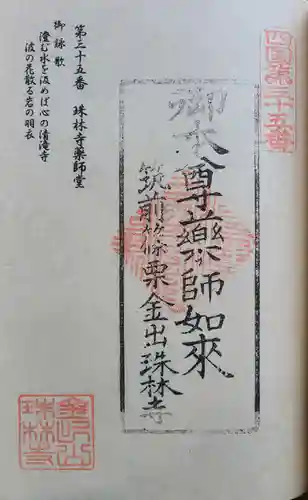 四国第三十五番
御本尊薬師如來
筑前篠栗金出珠林寺
第三十五番　珠林寺薬師堂
御詠歌
澄む水を汲めば心の清滝寺
波の花散る岩の羽衣
金出山
珠林寺